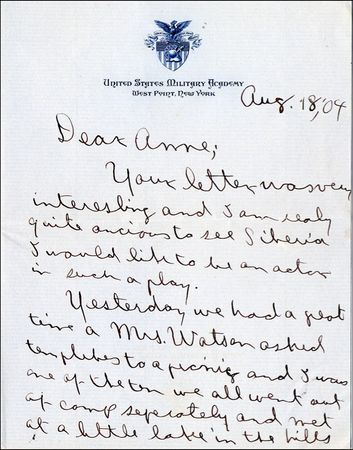 United States Military Academy
West Point, New York
Aug. 18, 04
Dear Anne;
Your letter was very
interesting and I am realy
quite ancious to see Siberia
I would like to be an actor
in such a play.
Yesterday we had a great
time a Mrs. Watson asked
ten plebes to a picnic and I was
one of the ten we all went out
of camp seperately and met
at a little lake in the hills